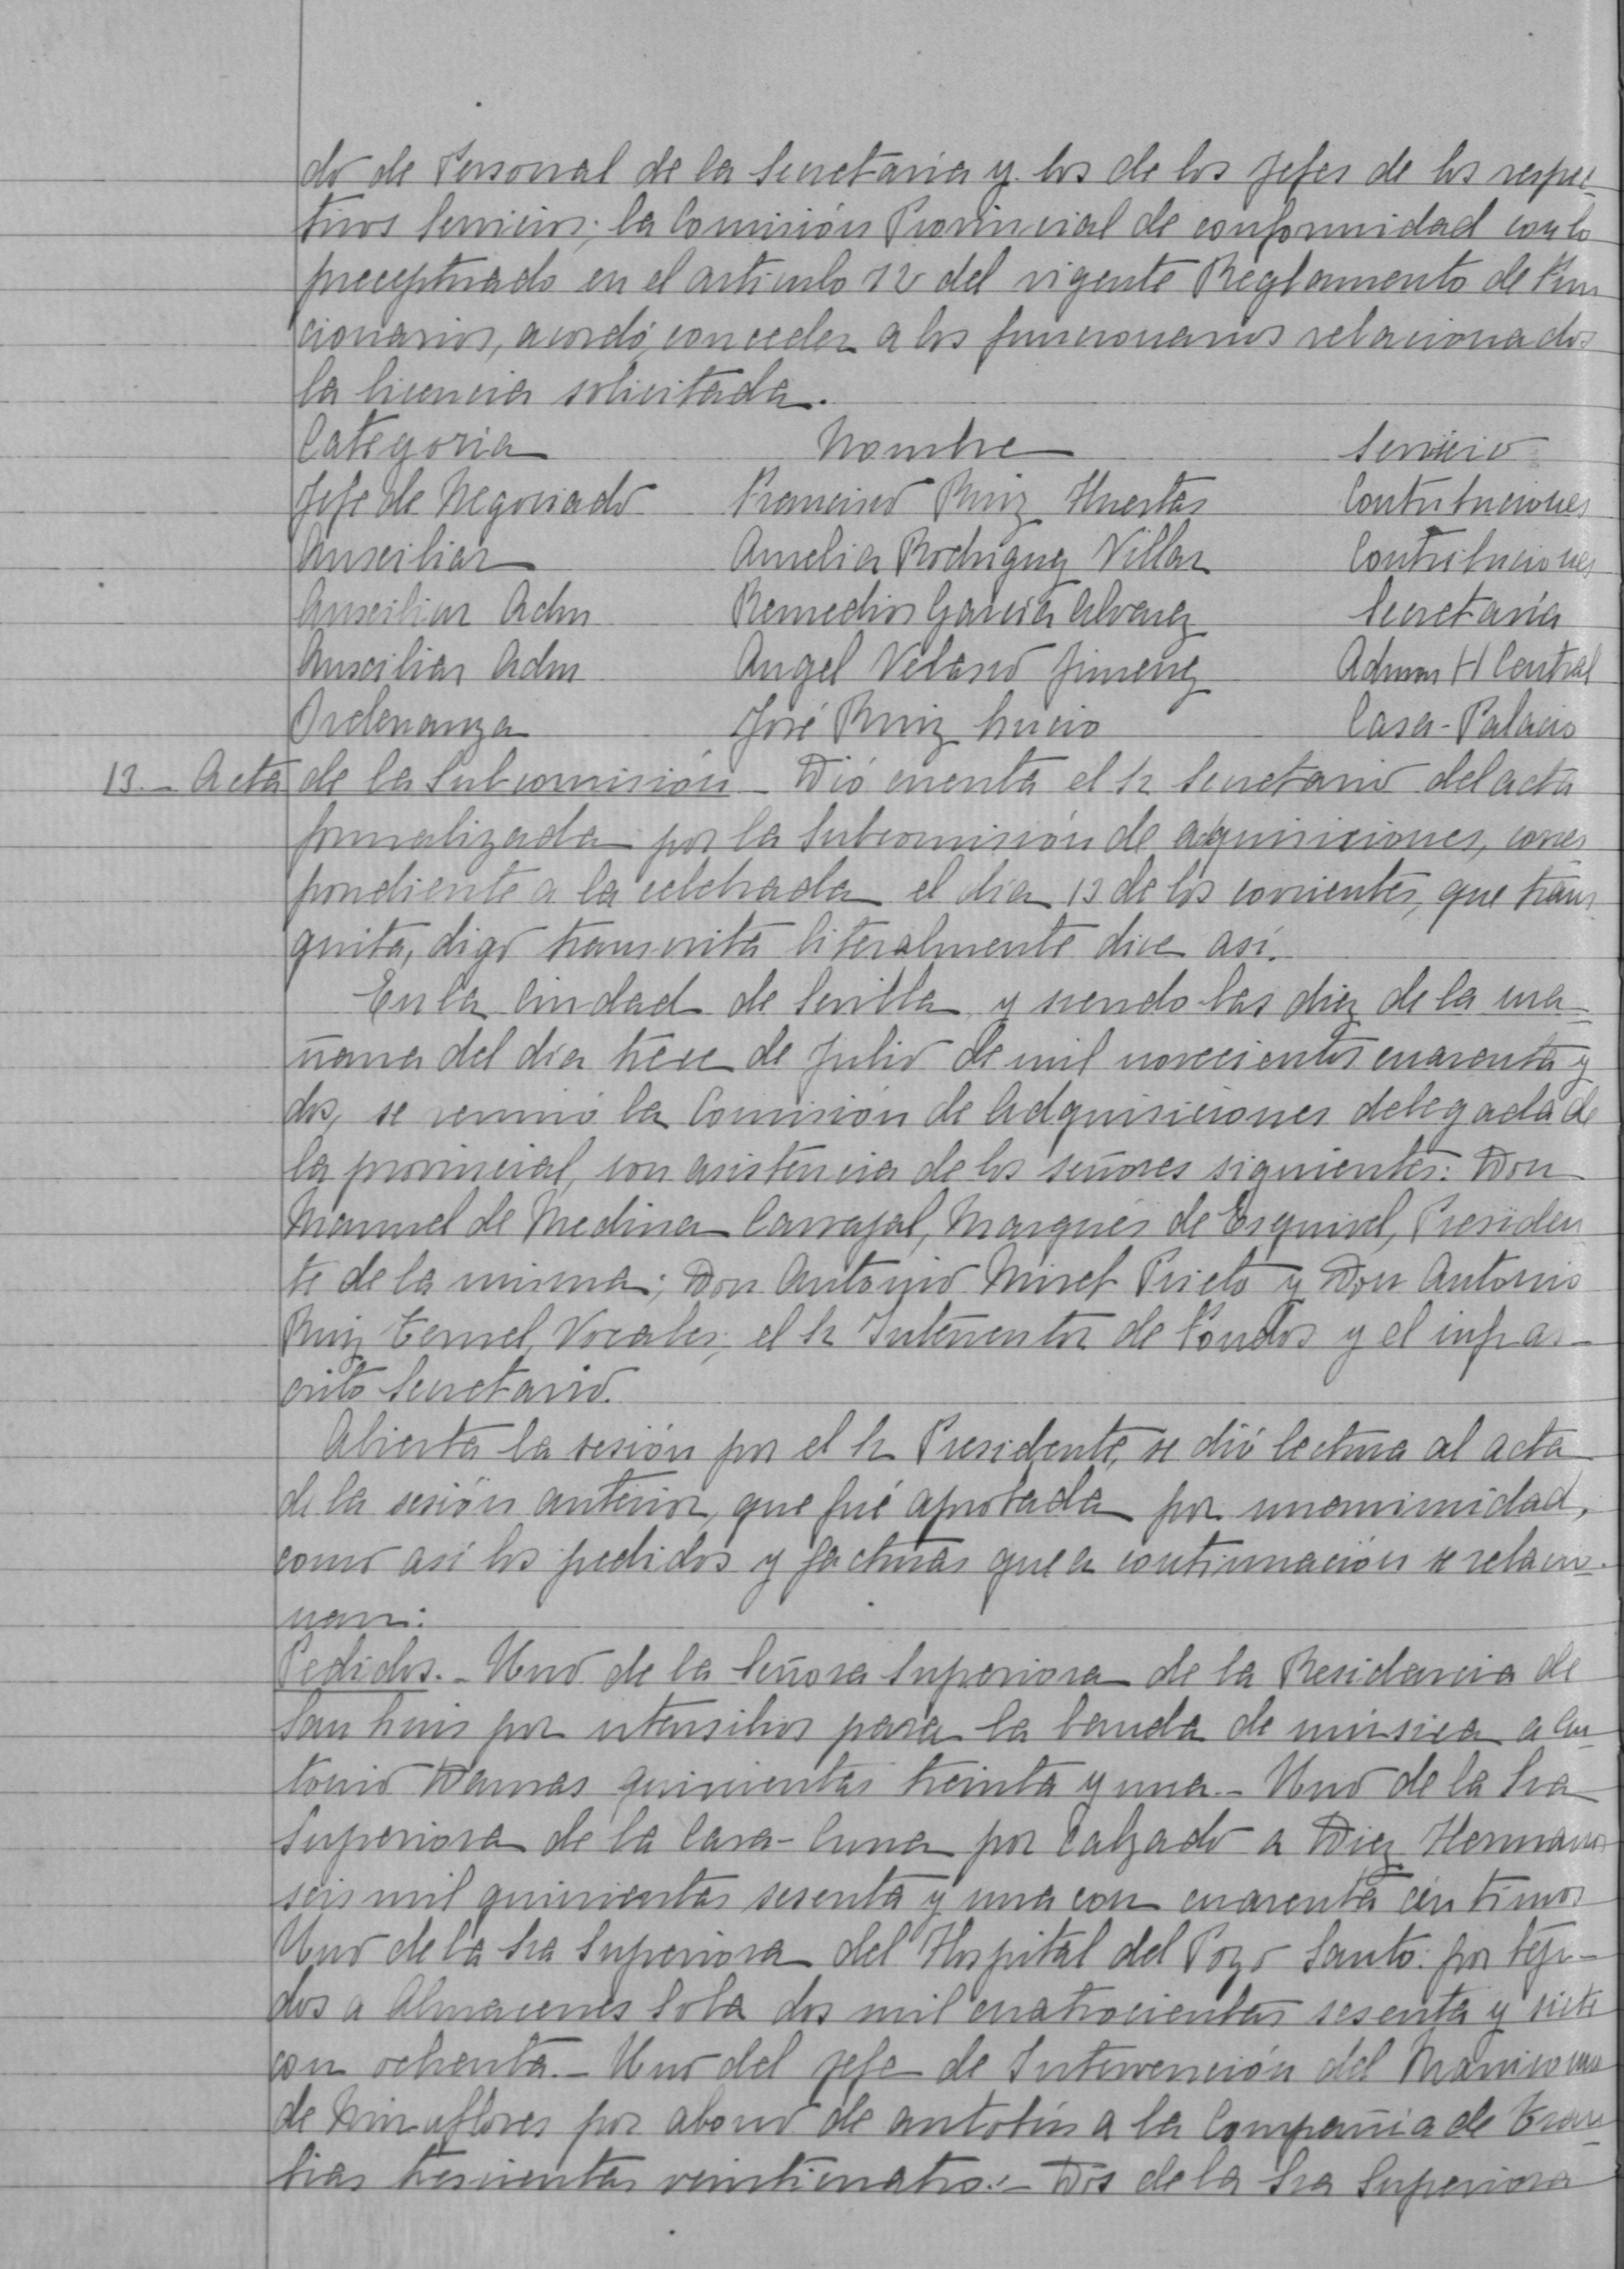 do de Personal de la Secretaria y los de los Jefes de los respec-
tivos Servicios; la Comisión Provincial de conformidad con lo
preceptuado en el articulo 12 del vigente Reglamento de Fun
cionarios, acordó conceder a los funcionarios relacionados
la licencia solicitada.
Categoria Nombre Servicio
Jefe de Negociado Francisco Ruiz Huertas Contribuciones
Auxiliar Amelia Rodriguez Villar Contribuciones
Auxiliar Adm Remedios Garcia Alvarez Secretaría
Auxiliar Adm Angel Velasco Jimenez Admon H Central
Ordenanza José Ruiz Lucio Casa-Palacio
13.- Acta de la Subcomisión - Dió cuenta el Sr Secretario del acta
formalizada por la Subcomisión de adquisiciones, corres
pondiente a la celebrada el dia 13 de los corrientes, que trans
quita, digo transcrita literalmente dice así.
En la Ciudad de Sevilla y siendo las diez de la ma-
ñana del dia trece de Julio de mil novecientos cuarenta y
dos, se reunió la Comisión de Adquisiciones delegada de
la provincial, con asistencia de los señores siguientes: Don
Manuel de Medina Carvajal, Marqués de Esquivel, Presiden
te de la misma; Don Antonio Miret Prieto y Don Antonio
Ruiz Teruel, Vocales; el Sr Interventor de Fondos y el infras-
crito Secretario.
Abierta la sesión por el Sr Presidente, se dió lectura al acta
de la sesión anterior, que fué aprobada por unanimidad,
como así los pedidos y facturas que a continuación se relacio-
nan:
Pedidos.- Uno de la Señora Superiora de la Residencia de
San Luis por utensilios para la banda de música a An-
tonio Damas quinientas treinta y una.- Uno de la Sra
Superiora de la Casa-Cuna por Calzado a Diez Hermanos
seis mil quinientas sesenta y una con cuarenta céntimos
Uno de la Sra Superiora del Hospital del Pozo Santo: por teji-
dos a Almacenes Sola dos mil cuatrocientas sesenta y siete
con ochenta.- Uno del Jefe de Intervención del Manicomio
de Miraflores por abono de autobús a la Compañia de Tran-
vias trescientas veinticuatro:- Dos de la Sra Superiora